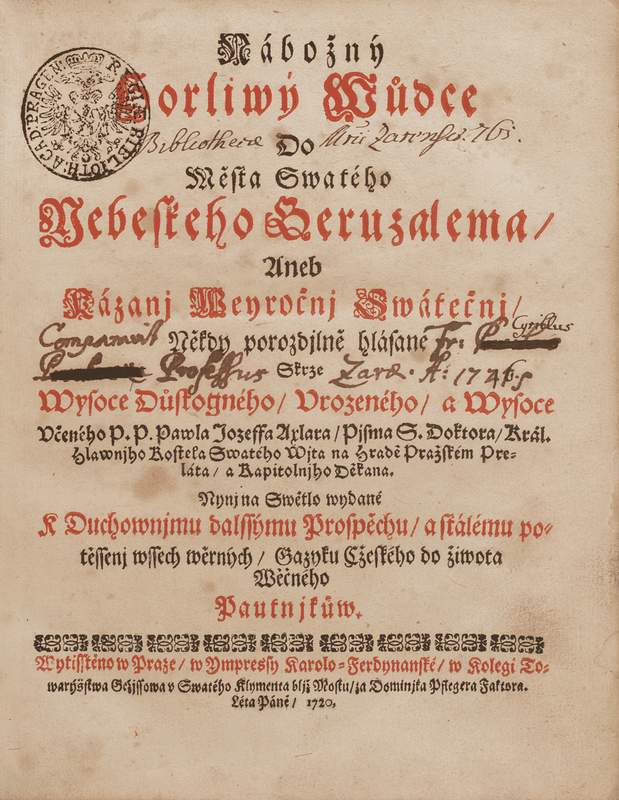 Nábožný
Horliwý Wůdce
Bibliothecæ
Do
Města Swatého
Nebeſkeho Geruzalema /
Aneb
Kázanj Weyročnj Swátečnj /
Comparavit Někdy porozdjlně hláſané Fr: Cyrillus
Professus Skrze Zaræ. A: 1746.
Wyſoce Důſtogného / Vrozeného / a Wyſoce
Včeného P. P. Pawla Jozeffa Axlara / Pjſma S. Doktora / Král.
Hlawnjho Koſtela Swatého Wjta na Hradě Pražſkém Pre-
láta / a Kapitolnjho Děkana.
Nynj na Swětlo wydané
K Duchownjmu dalſſýmu Proſpěchu / a ſtálému po-
těſſenj wſſech wěrných / Gazyku Cžeſkého do žiwota
Wěčného
Pautnjkůw.
Wytiſſtěno w Praze / w Ympreſſy Karolo-Ferdynanſké / w Kolegi To-
waryšſtwa Gežjſſowa v Swatého Klymenta bljž Moſtu / za Dominjka Pſlegera Faktora.
Léta Páně / 1720.
REGIÆ BIBLIOTH: ACAD: PRAGEN: